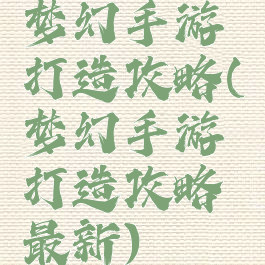 梦幻手游
打造攻略(
梦幻手游
打造攻略
最新)